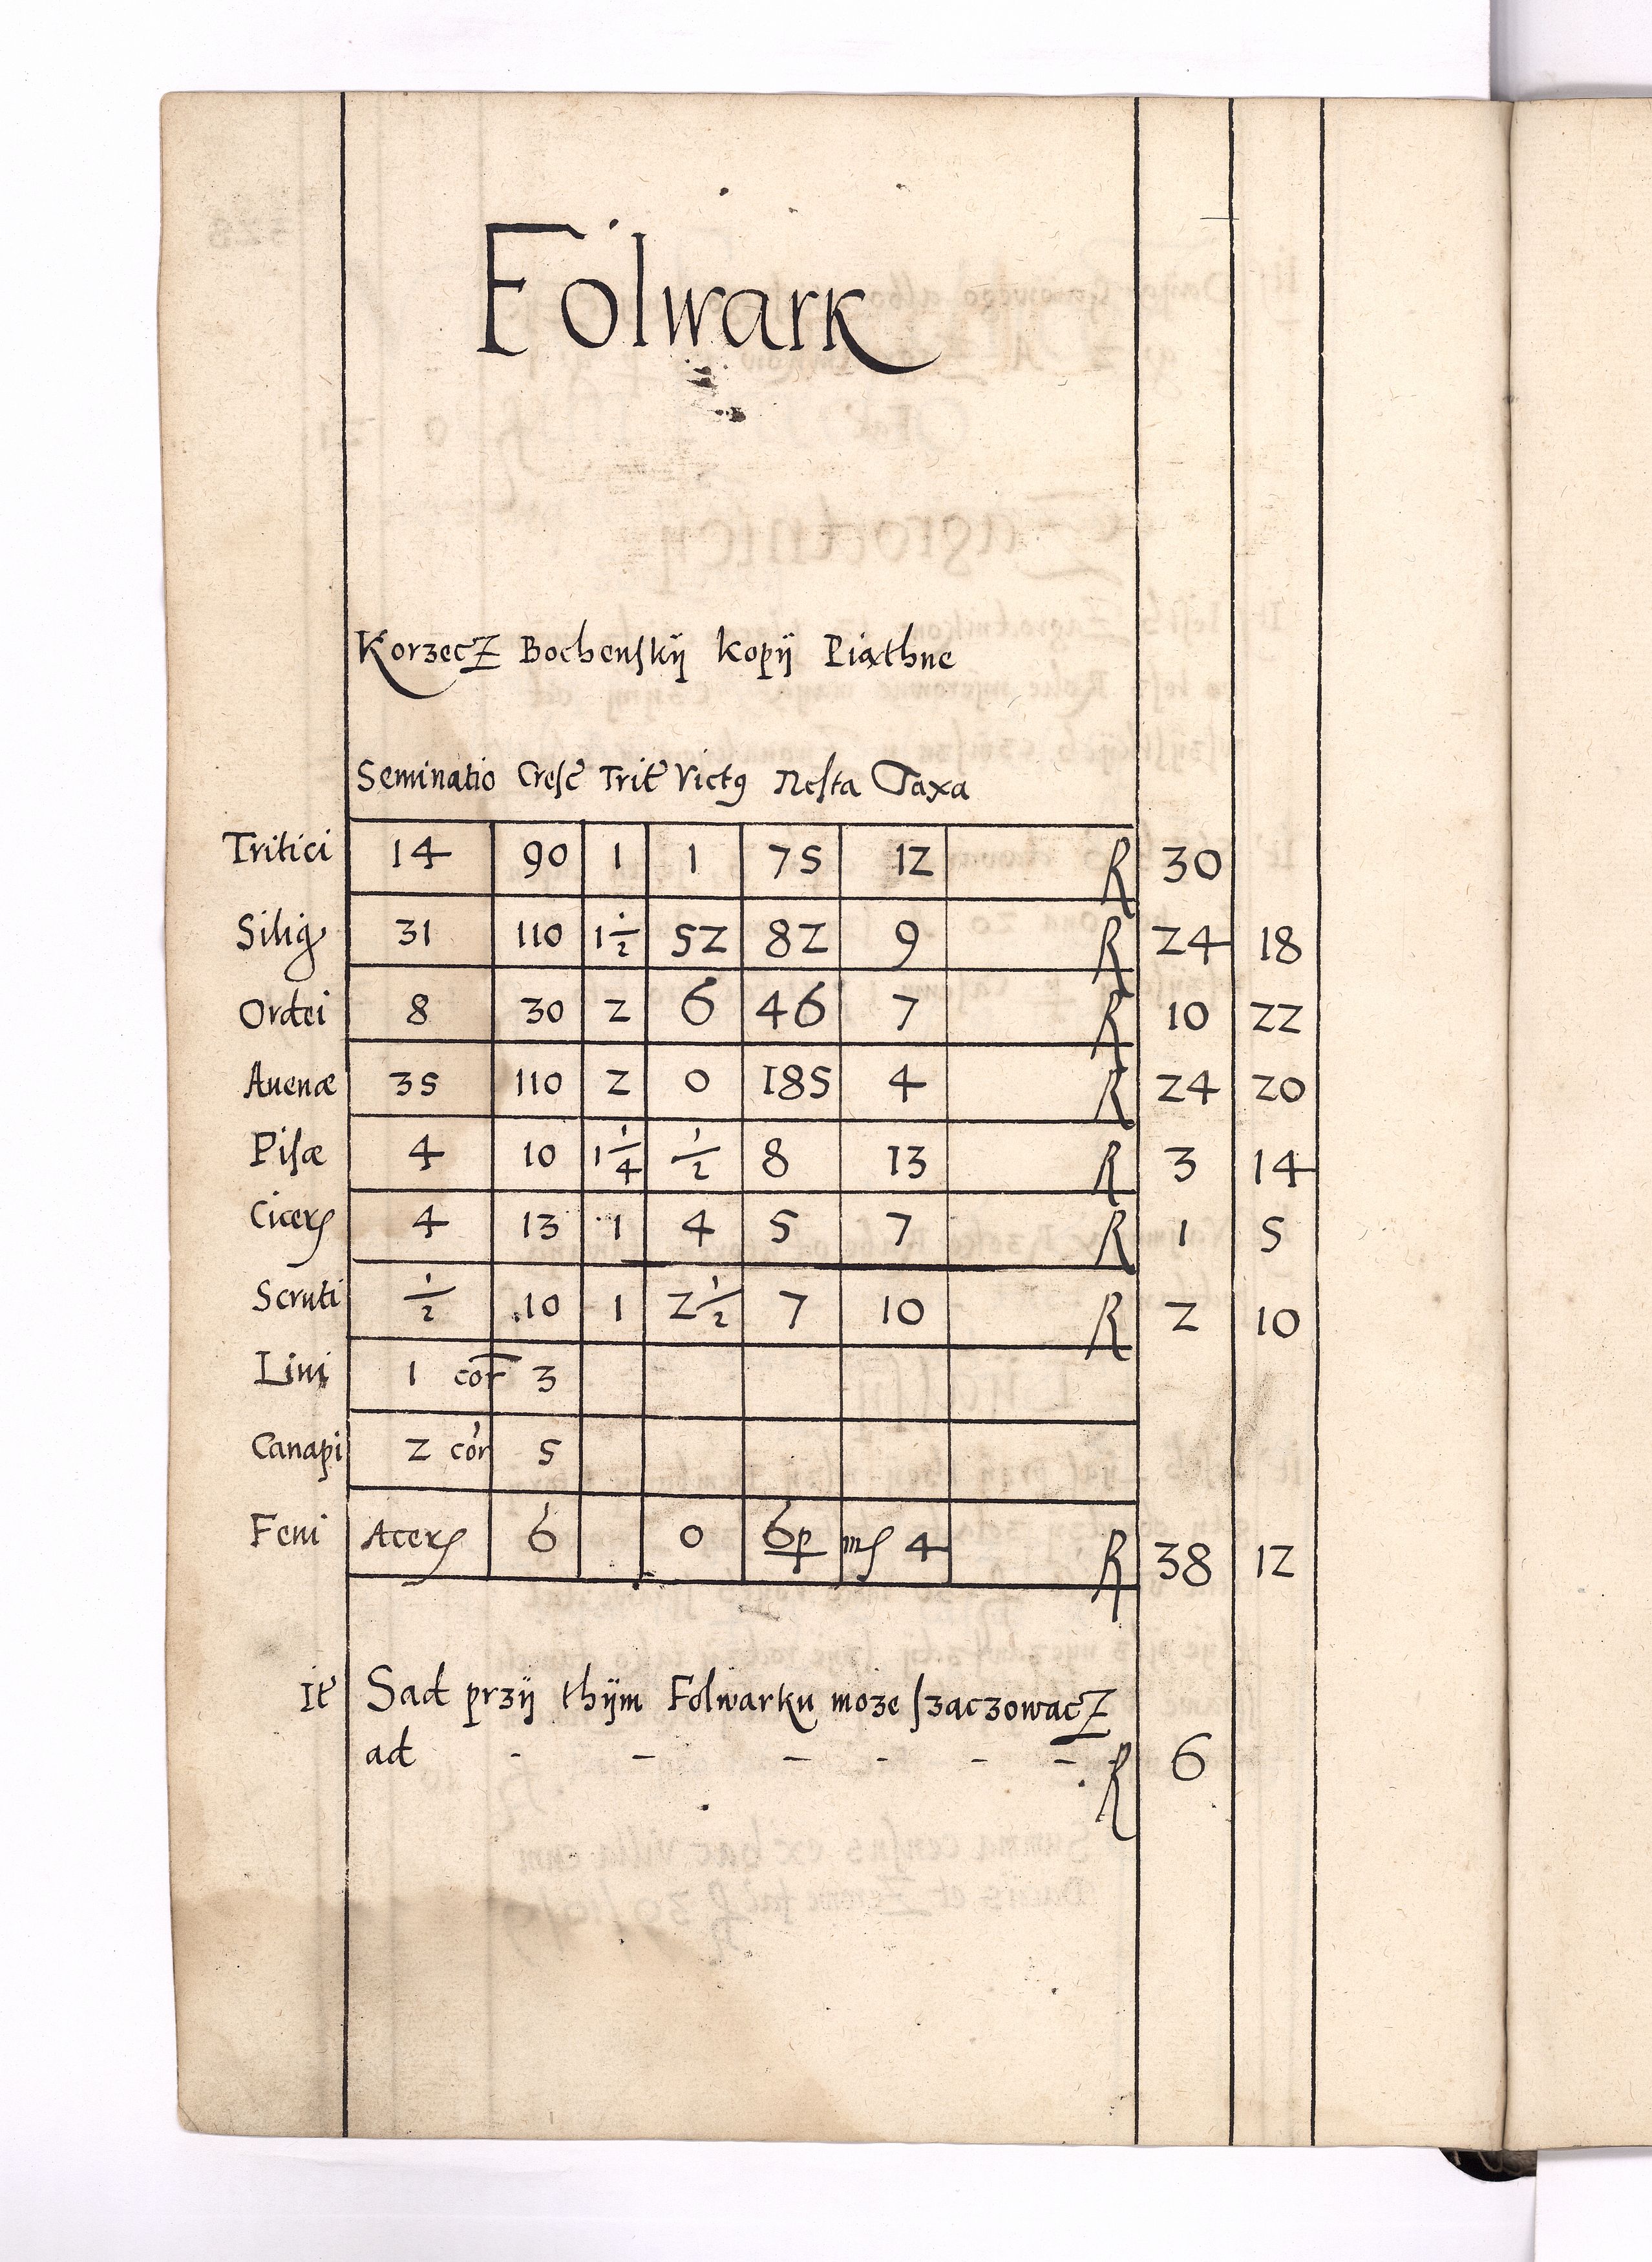 Folwark
Korzecz Bochenskÿ kopÿ Piathne
Seminatio Cresc̃ Trit̃ Victꝯ Resta Taxa
Tritici 14 90 1 1 75 12 ℟ 30
Silig 31 110 1½ 52 82 9 ℟ 24 18
Ordei 8 30 2 6 46 7 ℟ 10 22
Auenæ 35 110 2 0 185 4 ℟ 24 20
Pisæ 4 10 1¼ ½ 8 13 ℟ 3 14
Cicerꝭ 4 13 1 4 5 7 ℟ 1 5
Scruti ½ 10 1 2½ 7 10 ℟ 2 10
Lini 1 cor 3
Canapi 2 cor 5
Feni Acerꝭ 6 0 6 ꝑ mꝭ 4 ℟ 38 12
It̃ Sad przÿ thÿm Folwarku moze szaczowacz
ad - - - - - - ℟ 6